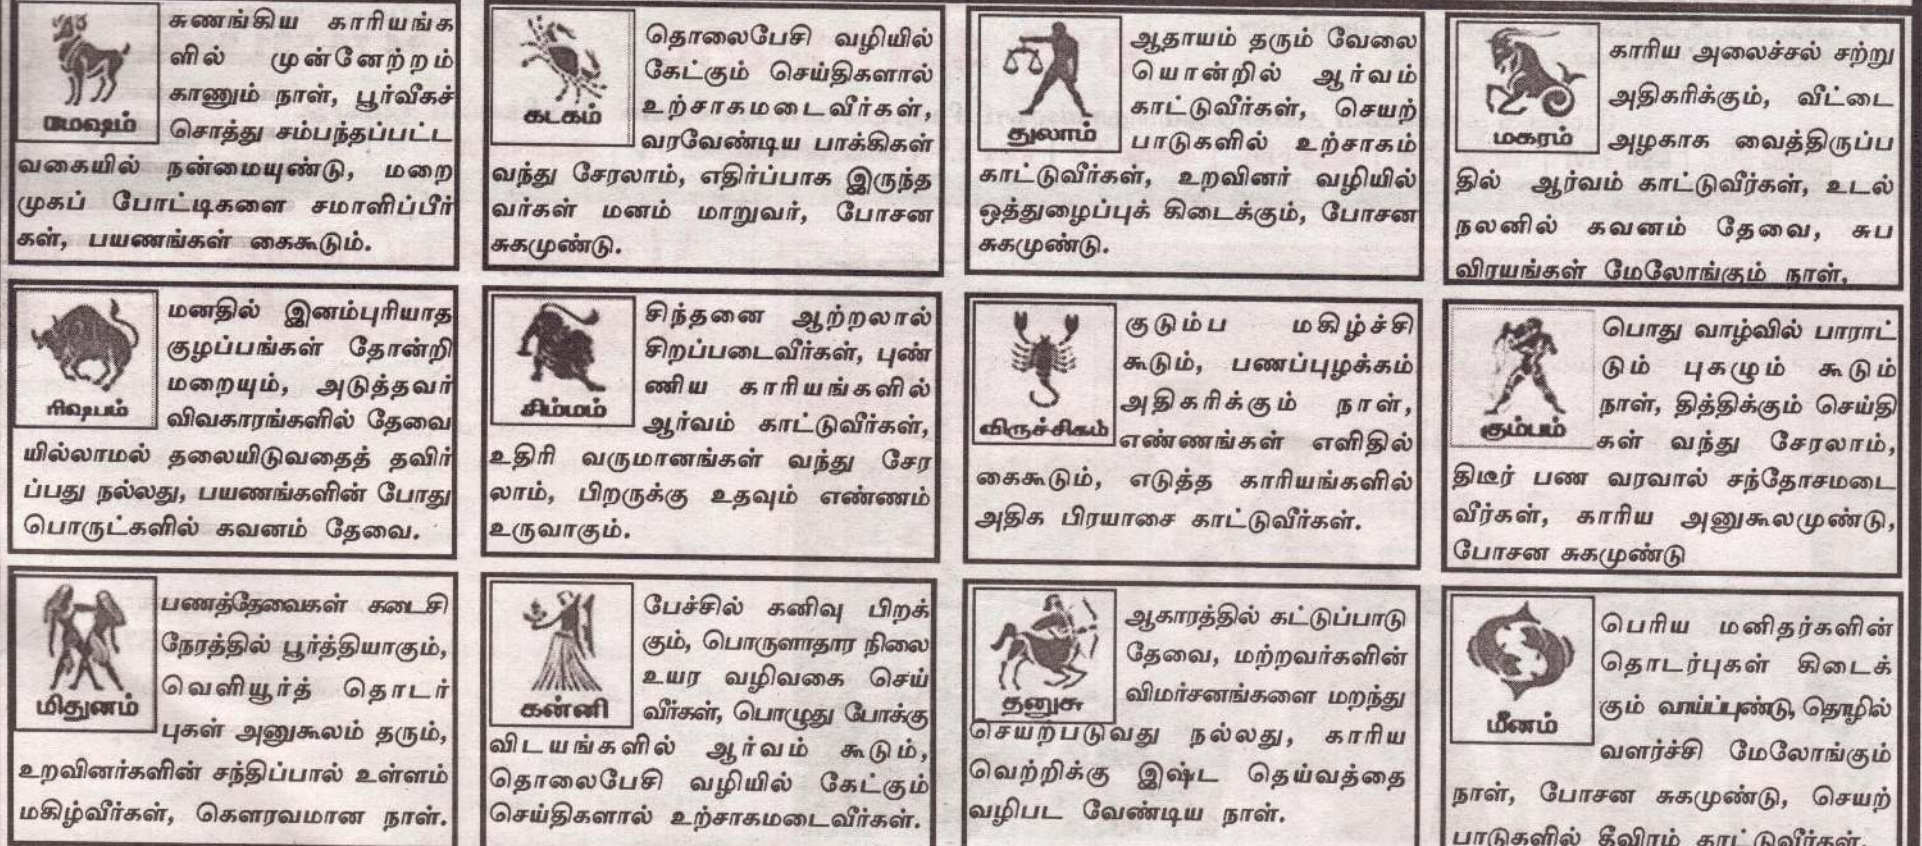 சுணங்கிய காரியங்க
ளில் முன்னேற்றம்
காணும் நாள், பூர்வீகச்
சொத்து சம்பந்தப்பட்ட
மேஷம்
வகையில் நன்மையுண்டு, மறை
முகப் போட்டிகளை சமாளிப்பீர்
கள், பயணங்கள் கைகூடும்.
மனதில் இனம்புரியாத
குழப்பங்கள் தோன்றி
மறையும், அடுத்தவர்
விவகாரங்களில் தேவை
ரிஷபம்
யில்லாமல் தலையிடுவதைத் தவிர்
ப்பது நல்லது, பயணங்களின் போது
பொருட்களில் கவனம் தேவை.
பணத்தேவைகள் கடைசி
நேரத்தில் பூர்த்தியாகும்,
வெளியூர்த் தொடர்
புகள் அனுகூலம் தரும்,
மிதுனம்
உறவினர்களின் சந்திப்பால் உள்ளம்
மகிழ்வீர்கள், கௌரவமான நாள்.
தொலைபேசி வழியில்
கேட்கும் செய்திகளால்
உற்சாகமடைவீர்கள்,
வரவேண்டிய பாக்கிகள்
கடகம்
வந்து சேரலாம், எதிர்ப்பாக இருந்த
வர்கள் மனம் மாறுவர், போசன
சுகமுண்டு.
சிந்தனை ஆற்றலால்
சிறப்படைவீர்கள், புண்
ணிய காரியங்களில்
ஆர்வம் காட்டுவீர்கள்,
சிம்மம்
உதிரி வருமானங்கள் வந்து சேர
லாம், பிறருக்கு உதவும் எண்ணம்
உருவாகும்.
பேச்சில் கனிவு பிறக்
கும், பொருளாதார நிலை
உயர வழிவகை செய்
வீர்கள், பொழுது போக்கு
கன்னி
விடயங்களில் ஆர்வம் கூடும்,
தொலைபேசி வழியில் கேட்கும்
செய்திகளால் உற்சாகமடைவீர்கள்.
ஆதாயம் தரும் வேலை
யொன்றில் ஆர்வம்
காட்டுவீர்கள், செயற்
பாடுகளில் உற்சாகம்
துலாம்
காட்டுவீர்கள், உறவினர் வழியில்
ஒத்துழைப்புக் கிடைக்கும், போசன
சுகமுண்டு.
குடும்ப மகிழ்ச்சி
கூடும், பணப்புழக்கம்
அதிகரிக்கும் நாள்,
எண்ணங்கள் எளிதில்
விருச்சிகம்
கைகூடும், எடுத்த காரியங்களில்
அதிக பிரயாசை காட்டுவீர்கள்.
ஆகாரத்தில் கட்டுப்பாடு
தேவை, மற்றவர்களின்
விமர்சனங்களை மறந்து
தனுசு
செயற்படுவது நல்லது, காரிய
வெற்றிக்கு இஷ்ட தெய்வத்தை
வழிபட வேண்டிய நாள்.
காரிய அலைச்சல் சற்று
அதிகரிக்கும், வீட்டை
அழகாக வைத்திருப்ப
மகரம்
தில் ஆர்வம் காட்டுவீர்கள், உடல்
நலனில் கவனம் தேவை, சுப
விரயங்கள் மேலோங்கும் நாள்.
பொது வாழ்வில் பாராட்
டும் புகழும் கூடும்
நாள், தித்திக்கும் செய்தி
கள் வந்து சேரலாம்,
கும்பம்
திடீர் பண வரவால் சந்தோசமடை
வீர்கள், காரிய அனுகூலமுண்டு,
போசன சுகமுண்டு
பெரிய மனிதர்களின்
தொடர்புகள் கிடைக்
கும் வாய்ப்புண்டு, தொழில்
வளர்ச்சி மேலோங்கும்
மீனம்
நாள், போசன சுகமுண்டு, செயற்
பாடுகளில் தீவிரம் காட்டுவீர்கள்.